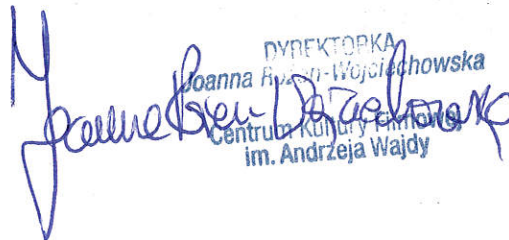 DYREKTORKA
Joanna Rożen-Wojciechowska
Centrum Kultury Filmowej
im. Andrzeja Wajdy
Joanna Rożen-Wojciechowska